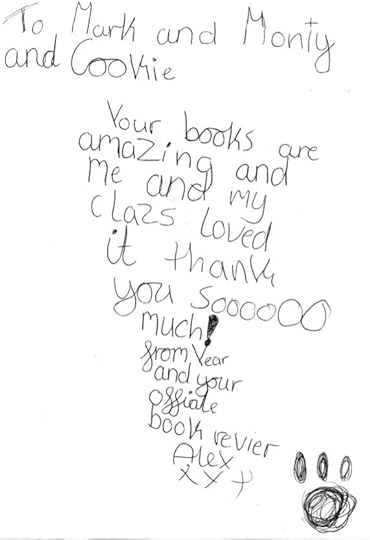 To Mark and Monty
and Cookie
Your books are
amazing and
me and my
clazs loved
it thank
you soooooo
much!
from Year
and your
offiale
book revier
Alex
xx+